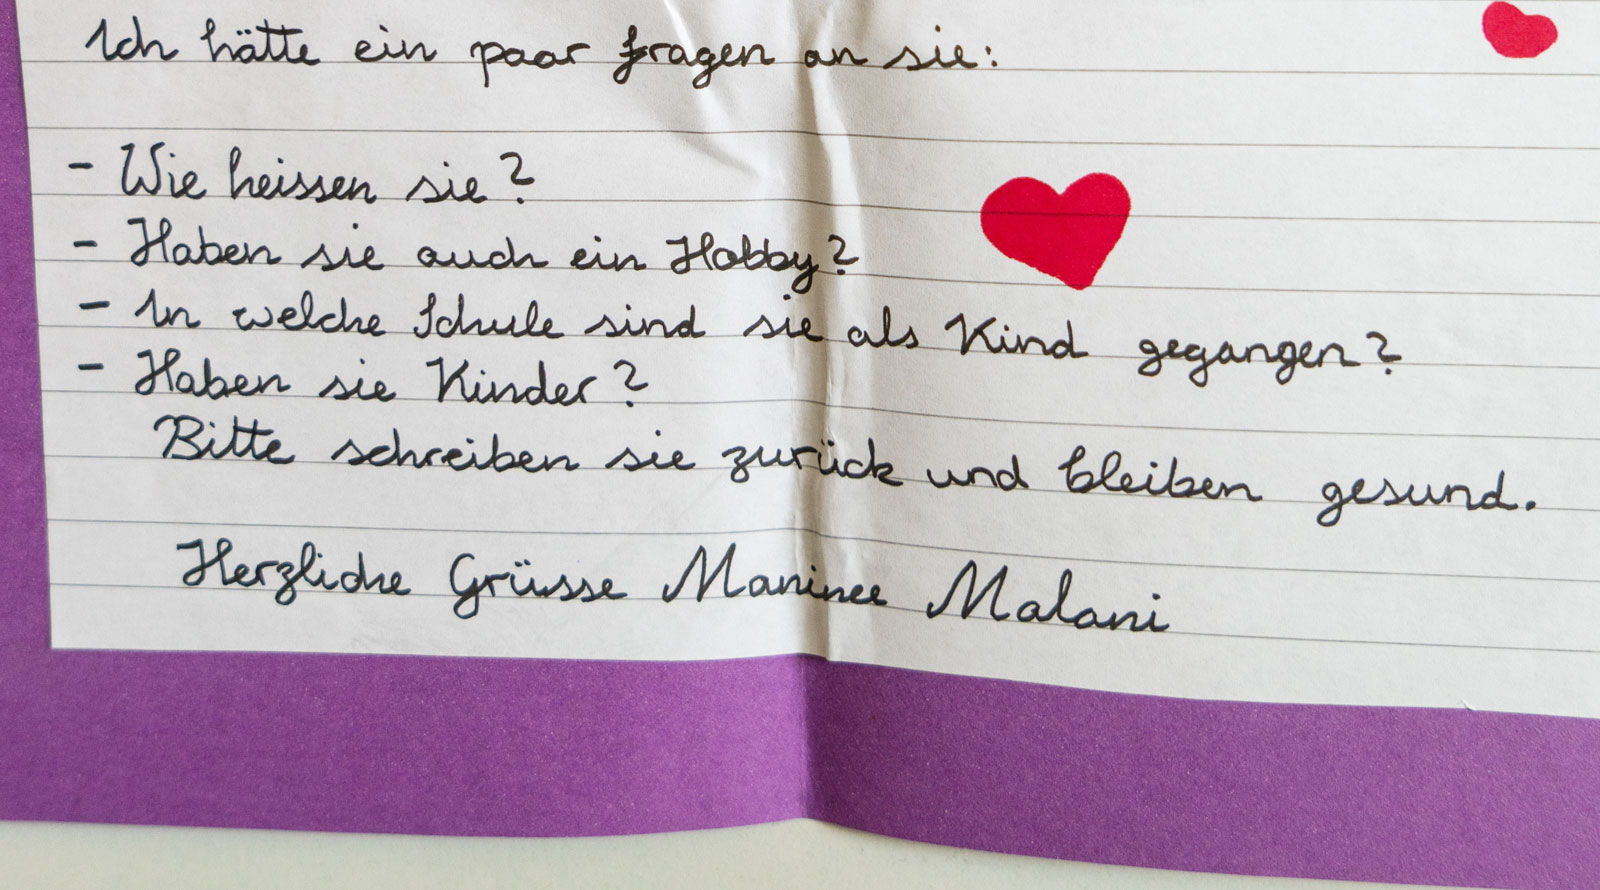 Ich hätte ein paar fragen an sie:
- Wie heissen sie?
- Haben sie auch ein Hobby?
- In welche Schule sind sie als Kind gegangen?
- Haben sie Kinder?
Bitte schreiben sie zurück und bleiben gesund.
Herzliche Grüsse Maninee Malani